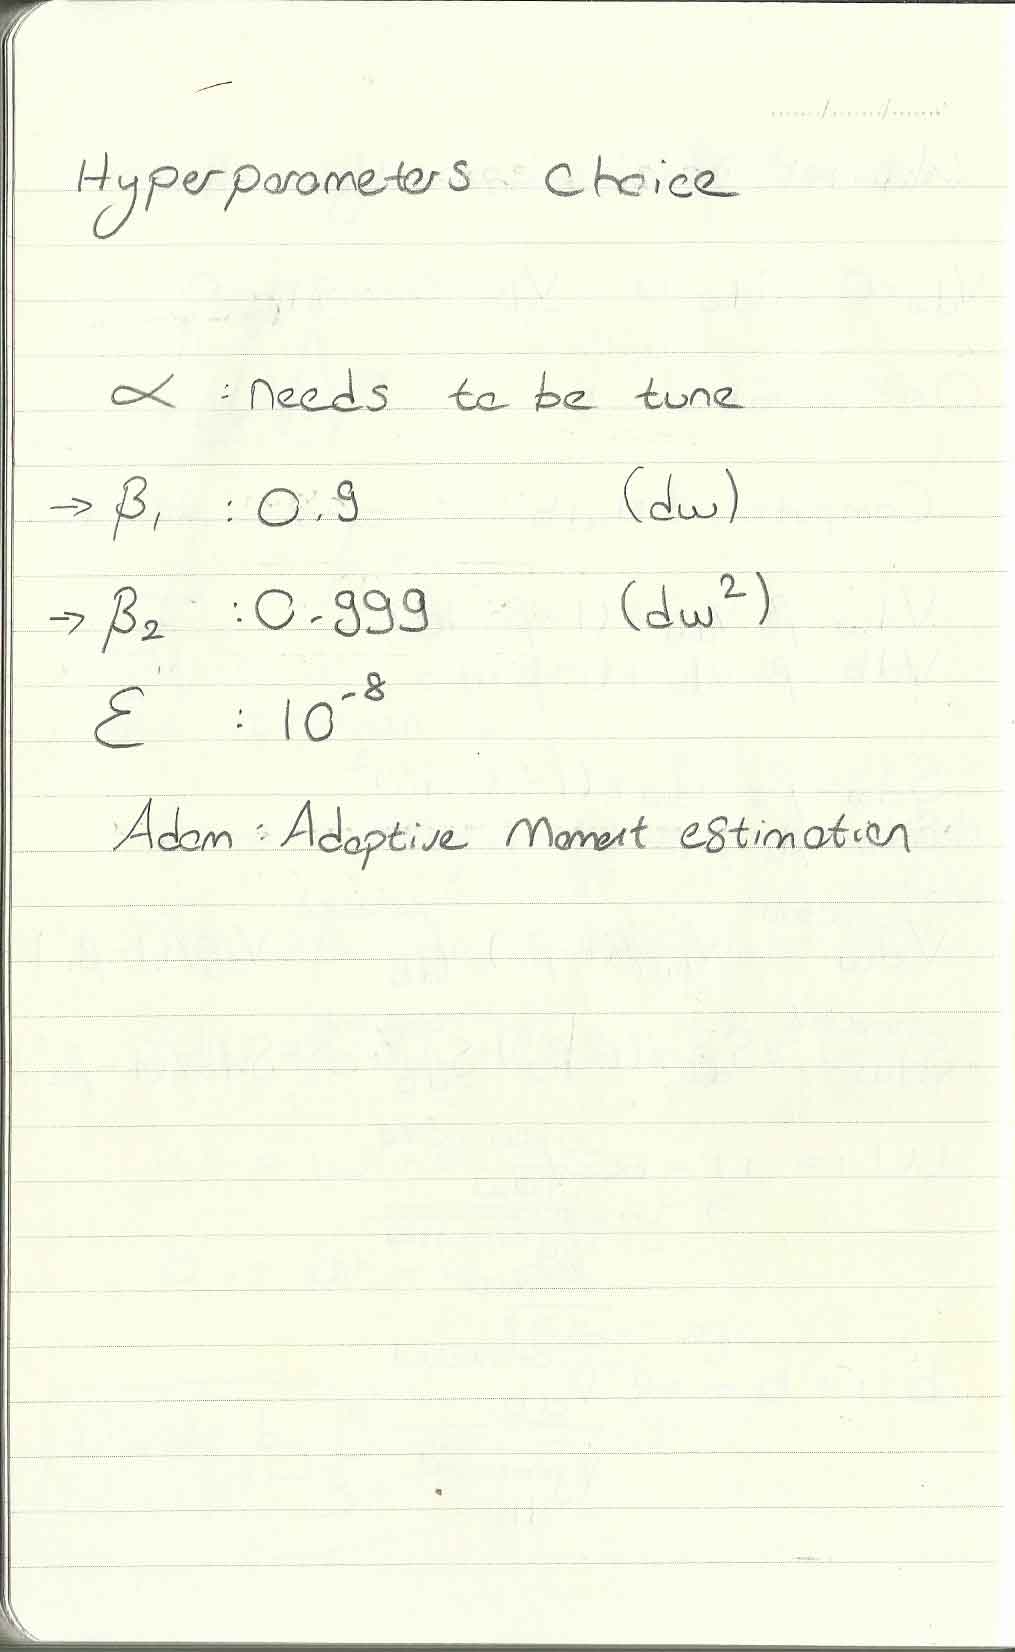 Hyperparameters choice
∝ : needs to be tune
→ β₁ : 0.9 (dw)
→ β₂ : 0.999 (dw²)
ε : 10⁻⁸
Adam : Adaptive Moment estimation